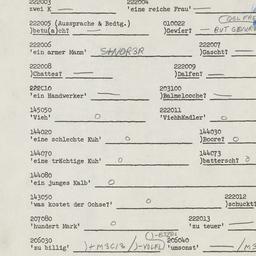 222003 222004
zwei K 'eine reiche Frau'
222005 (Aussprache & Bedtg.) 010022
)betu(a)cht? )Gewier?
222006 222007
'ein armer Mann' )Gascht?
222008 222009
)Chattes? )Dalfen?
222010 203100
'ein Handwerker' )Balmelooche?
145050 222011
'Vieh' O 'Viehhändler' O
144020 144030
'eine schlechte Kuh' O )Bocre? O
144070 144073
'eine trächtige Kuh' O )battersch? O
144080
'ein junges Kalb' O
143050 222012
'was kostet der Ochse?' O )schuckt?
207080 222013
'hundert Mark' O 'zu teuer'
205030 205040
'zu billig' 'umsonst'